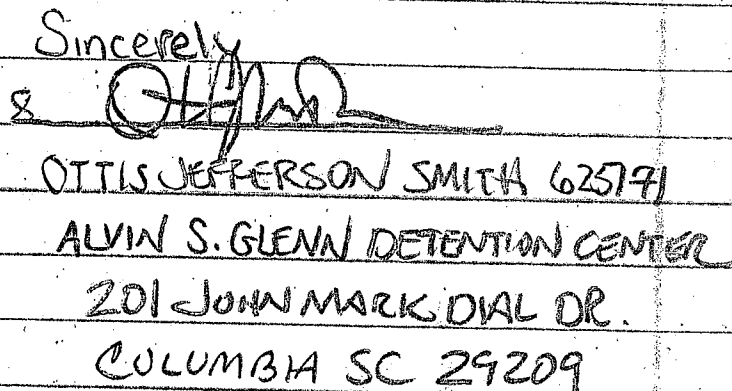 Sincerely
OTTIS JEFFERSON SMITH 625171
ALVIN S. GLENN DETENTION CENTER
201 JOHN MARK DIAL DR.
COLUMBIA SC 29209